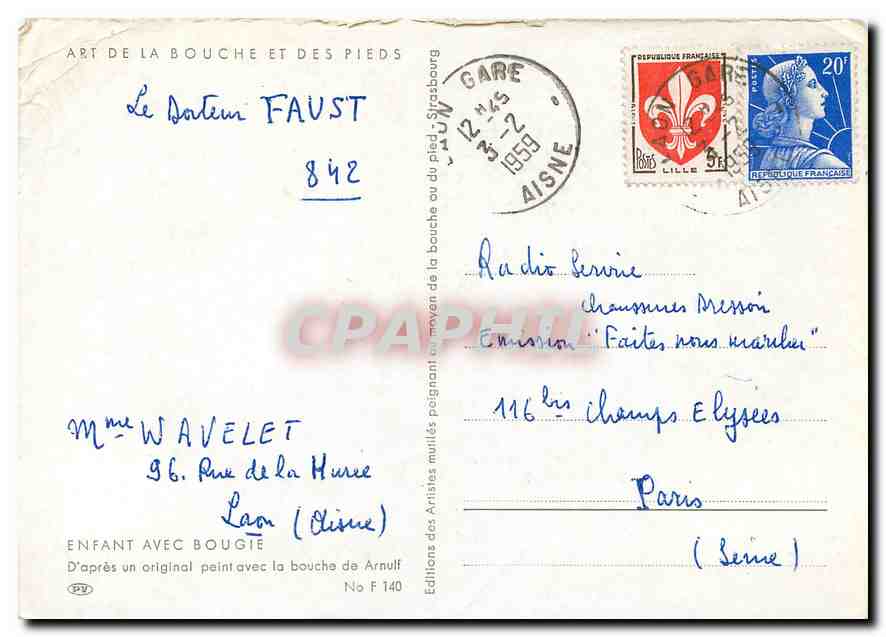 ART DE LA BOUCHE ET DES PIEDS
Le Docteur FAUST
842
Mme WAVELET
96. Rue de la Hurée
Laon (Aisne)
ENFANT AVEC BOUGIE
D'après un original peint avec la bouche de Arnulf
PV
No F 140
Editions des Artistes mutilés peignant au moyen de la bouche ou du pied - Strasbourg
GARE
12 H 45
3 -2
1959
AISNE
REPUBLIQUE FRANÇAISE
POSTES
5F
LILLE
POSTES
20F
REPUBLIQUE FRANÇAISE
LAON GARE
AISNE
Radio Service
Chaussures Dressoir
Emission "Faites nous marcher"
116 bis Champs Elysées
Paris
(Seine)
CPAPHIL